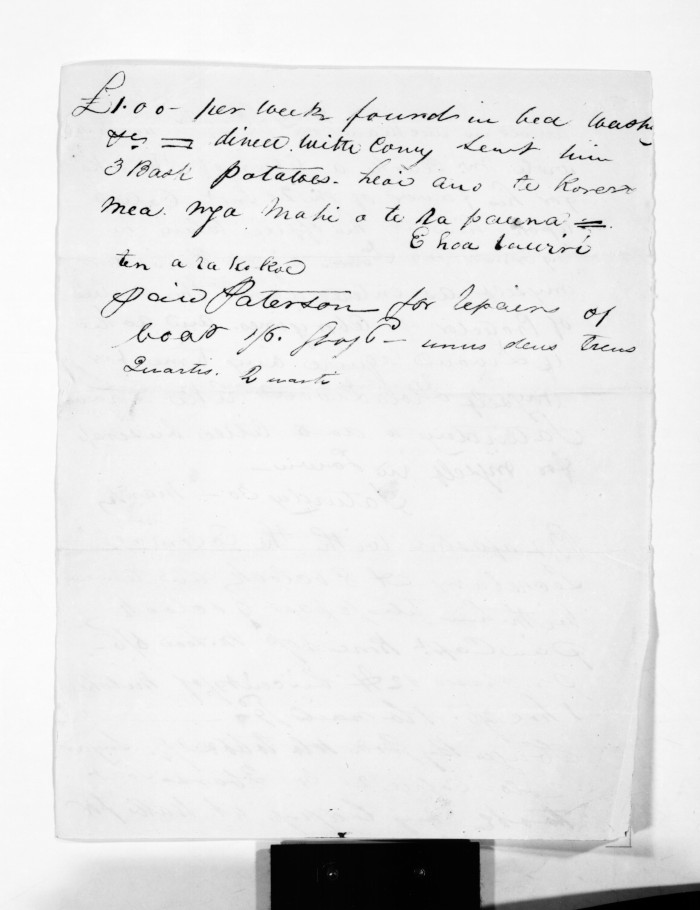 £1.00 - per week found in bed washg
&c = dined with Conny sent him
3 Bask potatoes. heoi ano te Korero
mea. nga mahi o te ra pauna =
E hoa
ten a ra ko koe
paid Paterson for repairs of
boat 1/6. - unus deus
Quartis. Quarti